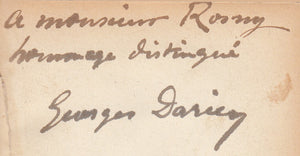 A monsieur Rosny
hommage distingué
Georges Darien